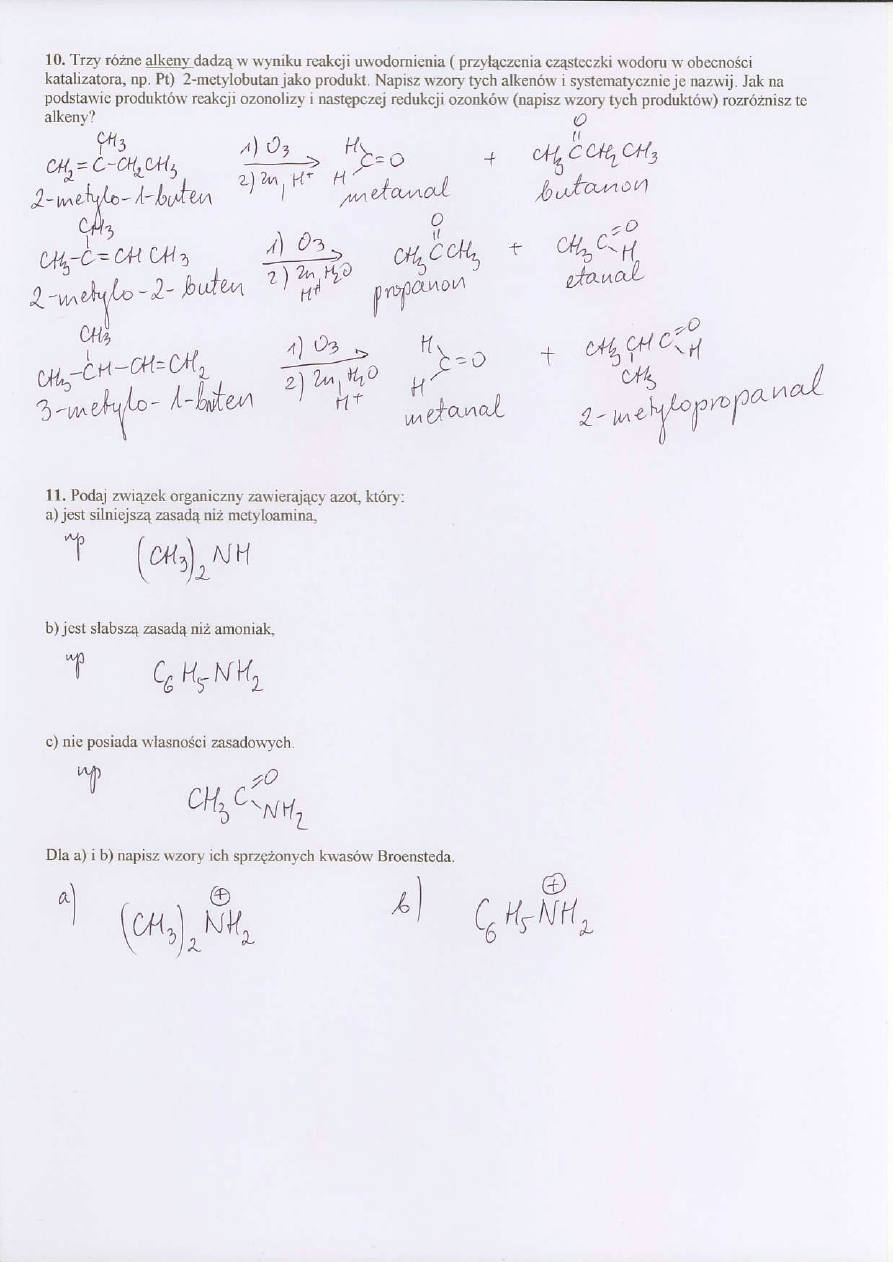 10. Trzy różne alkeny dadzą w wyniku reakcji uwodornienia ( przyłączenia cząsteczki wodoru w obecności
katalizatora, np. Pt) 2-metylobutan jako produkt. Napisz wzory tych alkenów i systematycznie je nazwij. Jak na
podstawie produktów reakcji ozonolizy i następczej redukcji ozonków (napisz wzory tych produktów) rozróżnisz te
alkeny?
CH3 O
CH2=C-CH2CH3 1) O3 H C=O + CH3CCH2CH3
2) Zn, H+ H
2-metylo-1-buten metanal butanon
CH3 O
CH3-C=CHCH3 1) O3 CH3CCH3 + CH3C=O H
2) Zn, H2O
H+
2-metylo-2-buten propanon etanal
CH3
CH3-CH-CH=CH2 1) O3 H C=O + CH3CHC=O H
2) Zn, H2O H CH3
H+
3-metylo-1-buten metanal 2-metylopropanal
11. Podaj związek organiczny zawierający azot, który:
a) jest silniejszą zasadą niż metyloamina,
np (CH3)2NH
b) jest słabszą zasadą niż amoniak,
np C6H5-NH2
c) nie posiada własności zasadowych.
np CH3C=O NH2
Dla a) i b) napisz wzory ich sprzężonych kwasów Broensteda.
a) (CH3)2NH2 ⊕ b) C6H5-NH2 ⊕